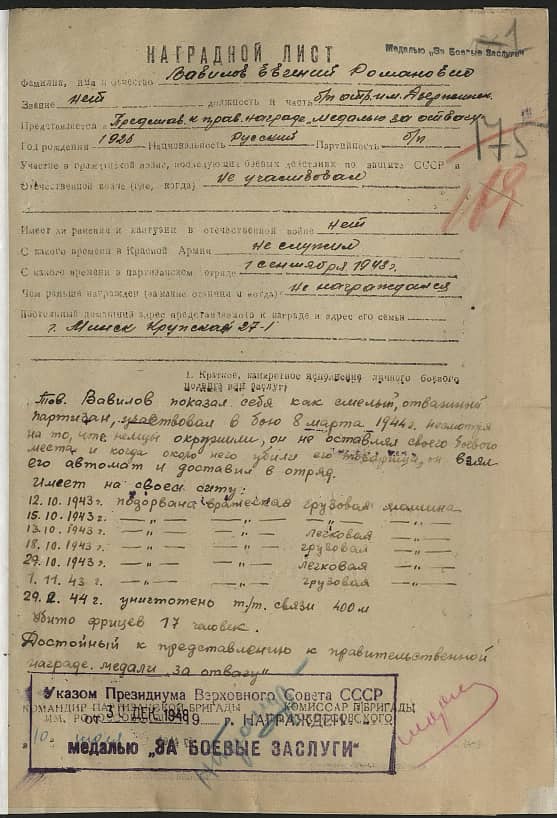 1
Медалью „За Боевые Заслуги"
НАГРАДНОЙ ЛИСТ
Фамилия, имя и отчество Вавилов Евгений Романович
Звание нет должность и часть
Представляется к Представ. к прав. награде „медалью за отвагу"
175
Год рождения 1926 Национальность Русский Партийность б/п
Участие в гражданской войне, последующих боевых действиях по защите СССР и
Отечественной войне (где, когда) не участвовал
169
Имеет ли ранения и контузии в отечественной войне нет
С какого времени в Красной Армии не служил
С какого времени в партизанском отряде 1 сентября 1943 г.
Чем раньше награжден (за какие отличия и когда) не награждался
Постоянный домашний адрес представляемого к награде и адрес его семьи
г. Минск Крупская 27-1
1. Краткое, конкретное изложение личного боевого
подвига или заслуг
Тов. Вавилов показал себя как смелый, отважный
партизан, участвовал в бою 8 марта 1944 г. несмотря
на то, что немцы окружили, он не оставлял своего боевого
места и когда около него убили его товарища, он взял
его автомат и доставил в отряд.
Имеет на своем счету:
12.10.1943 г. подорвана вражеская грузовая машина
15.10.1943 г. —„— —„— —„— —„—
13.10.1943 г. —„— —„— легковая —„—
18.10.1943 г. —„— —„— грузовая —„—
29.10.1943 г. —„— —„— легковая —„—
1.11.43 г. —„— —„— грузовая —„—
29.2.44 г. уничтожено т/т. связи 400 м
Убито фрицев 17 человек.
Достойный к представлению к правительственной
награде. медали „за отвагу"
Указом Президиума Верховного Совета СССР
КОМАНДИР ПАРТИЗАНСКОЙ БРИГАДЫ КОМИССАР П БРИГАДЫ
от 3 ДЕК 1948 г. НАГРАЖДЕН
10 июля
медалью „ЗА БОЕВЫЕ ЗАСЛУГИ"